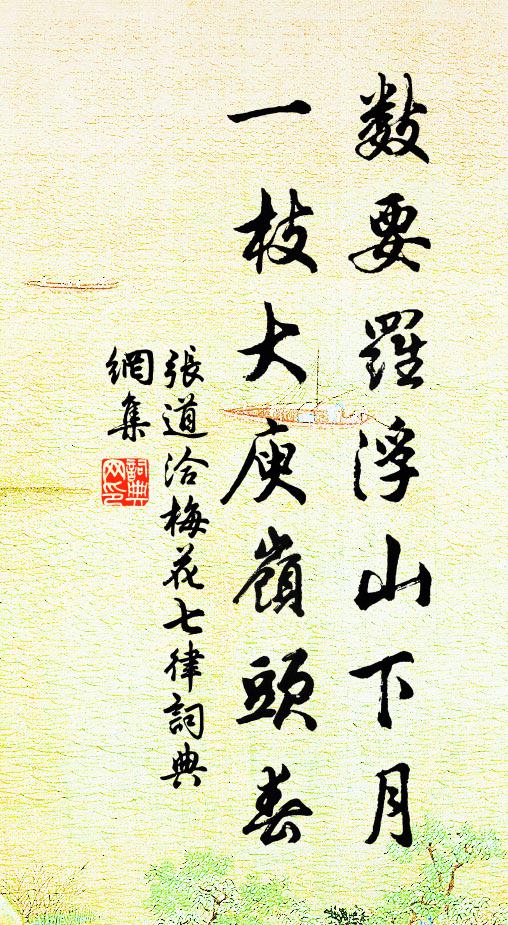 数要羅浮山下月
一枝大庾嶺頭春
張道洽梅花七律詞典
網集
詞典
网印